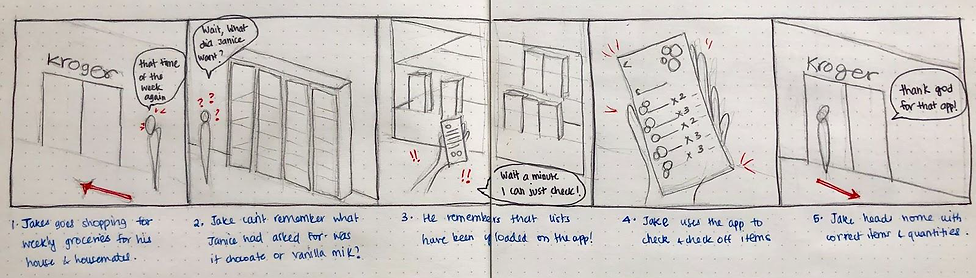 Kroger
that time
of the
week
again
Wait, what
did Janice
want?
? ? ?
?
!!
!!
Wait a minute
I can just check!
x 2
x 3
x 2
x 3
Kroger
thank god
for that app!
1. Jakes goes shopping for
weekly groceries for his
house & housemates.
2. Jake can't remember what
Janice had asked for. was
it chocoate or vanilla milk?
3. He remembers that lists
have been uploaded on the app!
4. Jake uses the app to
check & check off items
5. Jake heads home with
correct items & quantities.